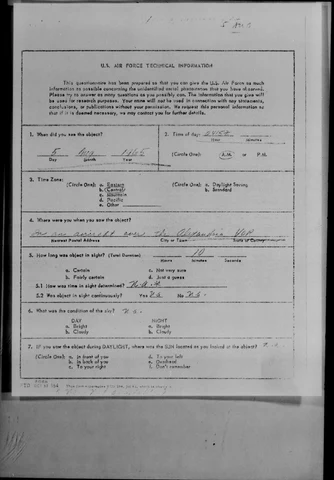 U.S. AIR FORCE TECHNICAL INFORMATION
This questionnaire has been prepared so that you can give the U.S. Air Force as much
information as possible concerning the unidentified aerial phenomenon that you have observed.
Please try to answer as many questions as you possibly can. The information that you give will
be used for research purposes. Your name will not be used in connection with any statements,
conclusions, or publications without your permission. We request this personal information so
that if it is deemed necessary, we may contact you for further details.
1. When did you see the object?
Day Month Year
2. Time of day:
Hour Minutes
(Circle One): A.M. or P.M.
3. Time Zone:
(Circle One): a. Eastern
b. Central
c. Mountain
d. Pacific
e. Other
(Circle One): a. Daylight Saving
b. Standard
4. Where were you when you saw the object?
over the Alexandria
Nearest Postal Address City or Town State or Country
5. How long was object in sight? (Total Duration) 10
Hours Minutes Seconds
a. Certain c. Not very sure
b. Fairly certain d. Just a guess
5.1 How was time in sight determined? N.A.
5.2 Was object in sight continuously? Yes No
6. What was the condition of the sky?
DAY NIGHT
a. Bright a. Bright
b. Cloudy b. Cloudy
7. IF you saw the object during DAYLIGHT, where was the SUN located as you looked at the object?
(Circle One): a. In front of you d. To your left
b. In back of you e. Overhead
c. To your right f. Don't remember
FORM
FTD OCT 62 164